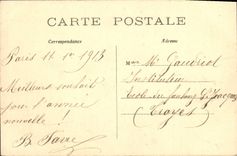 CARTE POSTALE
Correspondance
Adresse
Paris 11 1er 1913
Meilleurs souhaits
pour l'année
nouvelle !
B. Favre
Mme Mr Gaudriot
Institutrice
Ecole du faubourg
Troyes